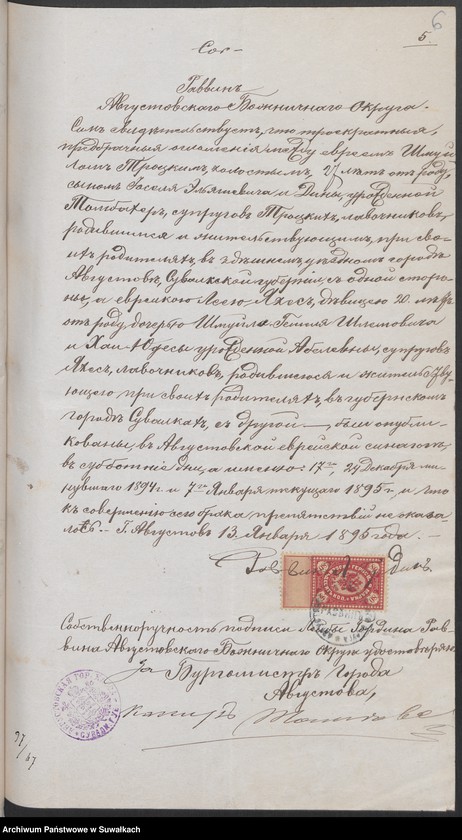 6
5.
Сог-
Раввинъ
Августовскаго Божничнаго Округа.
Симъ свидѣтельствуетъ, что троекратныя,
предбрачныя оглашенія между евреемъ Шмуй
ломъ Троцкимъ, холостымъ, лѣтъ отъ роду,
сыномъ Іоселя Эльяшевича и Дины, урожденной
супруговъ Троцкихъ, лавочниковъ,
родившимся и жительствующимъ, при сво-
ихъ родителяхъ, въ здѣшнемъ уѣздномъ городѣ
Августовѣ, Сувалкской губерніи, съ одной сторо-
ны, а еврейкою Асею Яхесъ, дѣвицею 20. лѣтъ
отъ роду, дочерью Шмуйла-Гемиля Шлемовича
и Хаи-Юдесы урожденной Абелевны, супруговъ
Яхесъ, лавочниковъ, родившеюся и жительству-
ющею при своихъ родителяхъ, въ губернскомъ
городѣ Сувалкахъ, съ другой —, были опубли-
кованы, въ Августовской еврейской синагогѣ,
въ субботніе дни, а именно: 17го, 24 Декабря ми-
нувшаго 1894 г. и 7го Января текущаго 1895 г. и что
къ совершенію сего брака препятствій не оказа-
лось. – Г. Августовъ 13 Января 1895 года. –
Раввинъ
Собственноручность подписи Гордина Рав-
вина Августовскаго Божничнаго Округа удостовѣряю
За Бургомистръ Города
Августова,
97/67
Archiwum Państwowe w Suwałkach